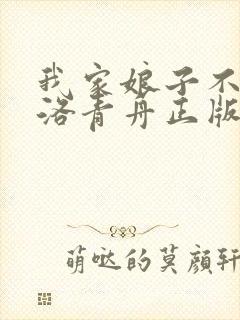 我家娘子不
洛青丹正版
萌哒的莫颜轩